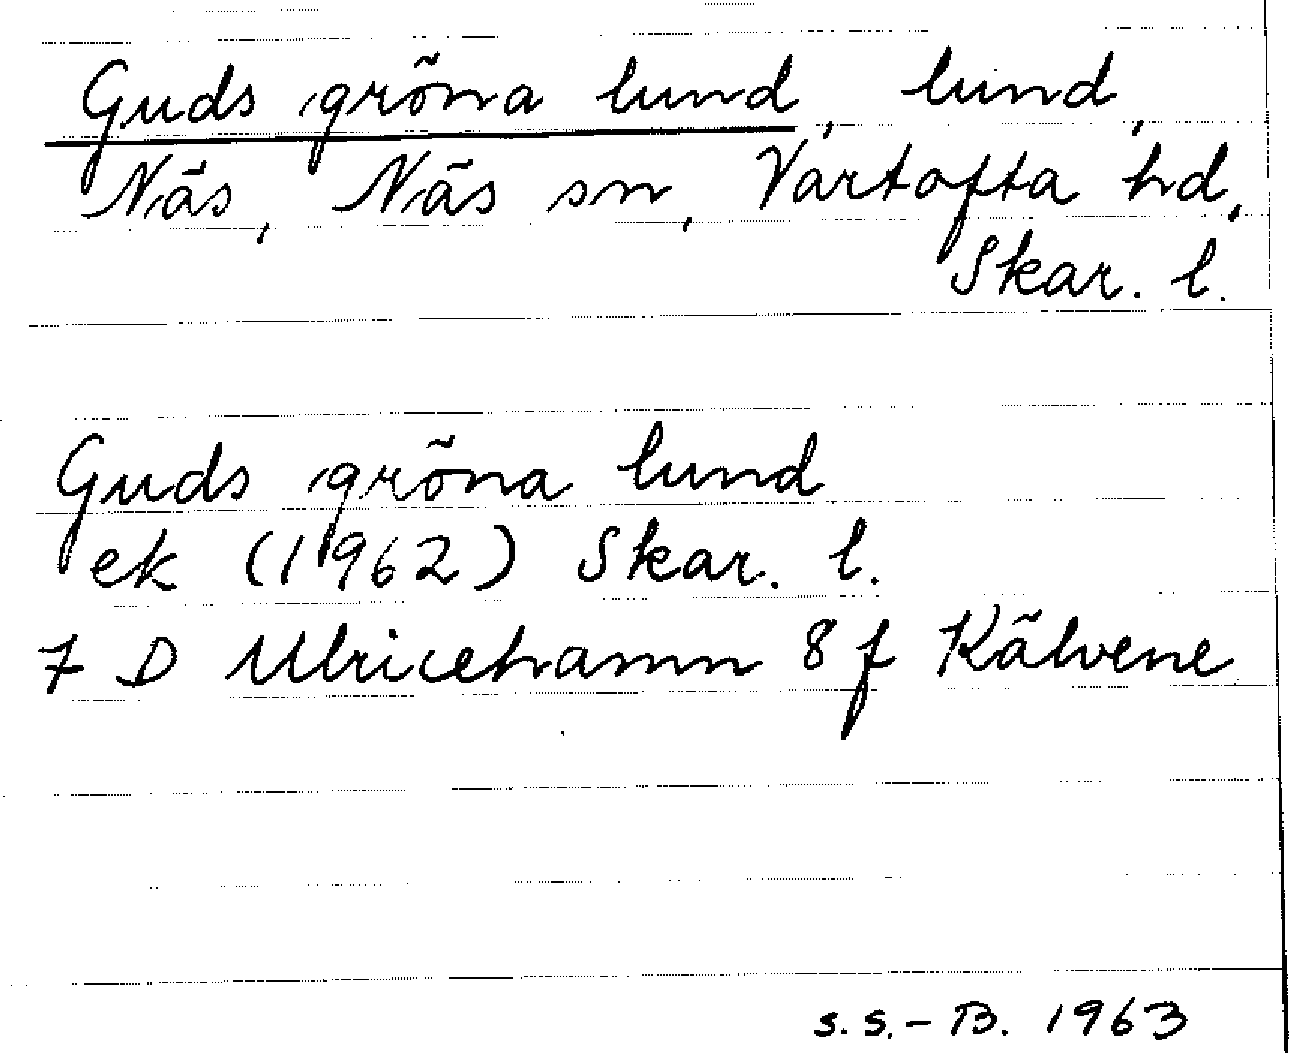 Guds gröna lund, lund,
Näs, Näs sn, Vartofta hd,
Skar. l.
Guds gröna lund
ek (1962) Skar. l.
7 D Ulricehamn 8 f Kälvene
s.s.-B. 1963